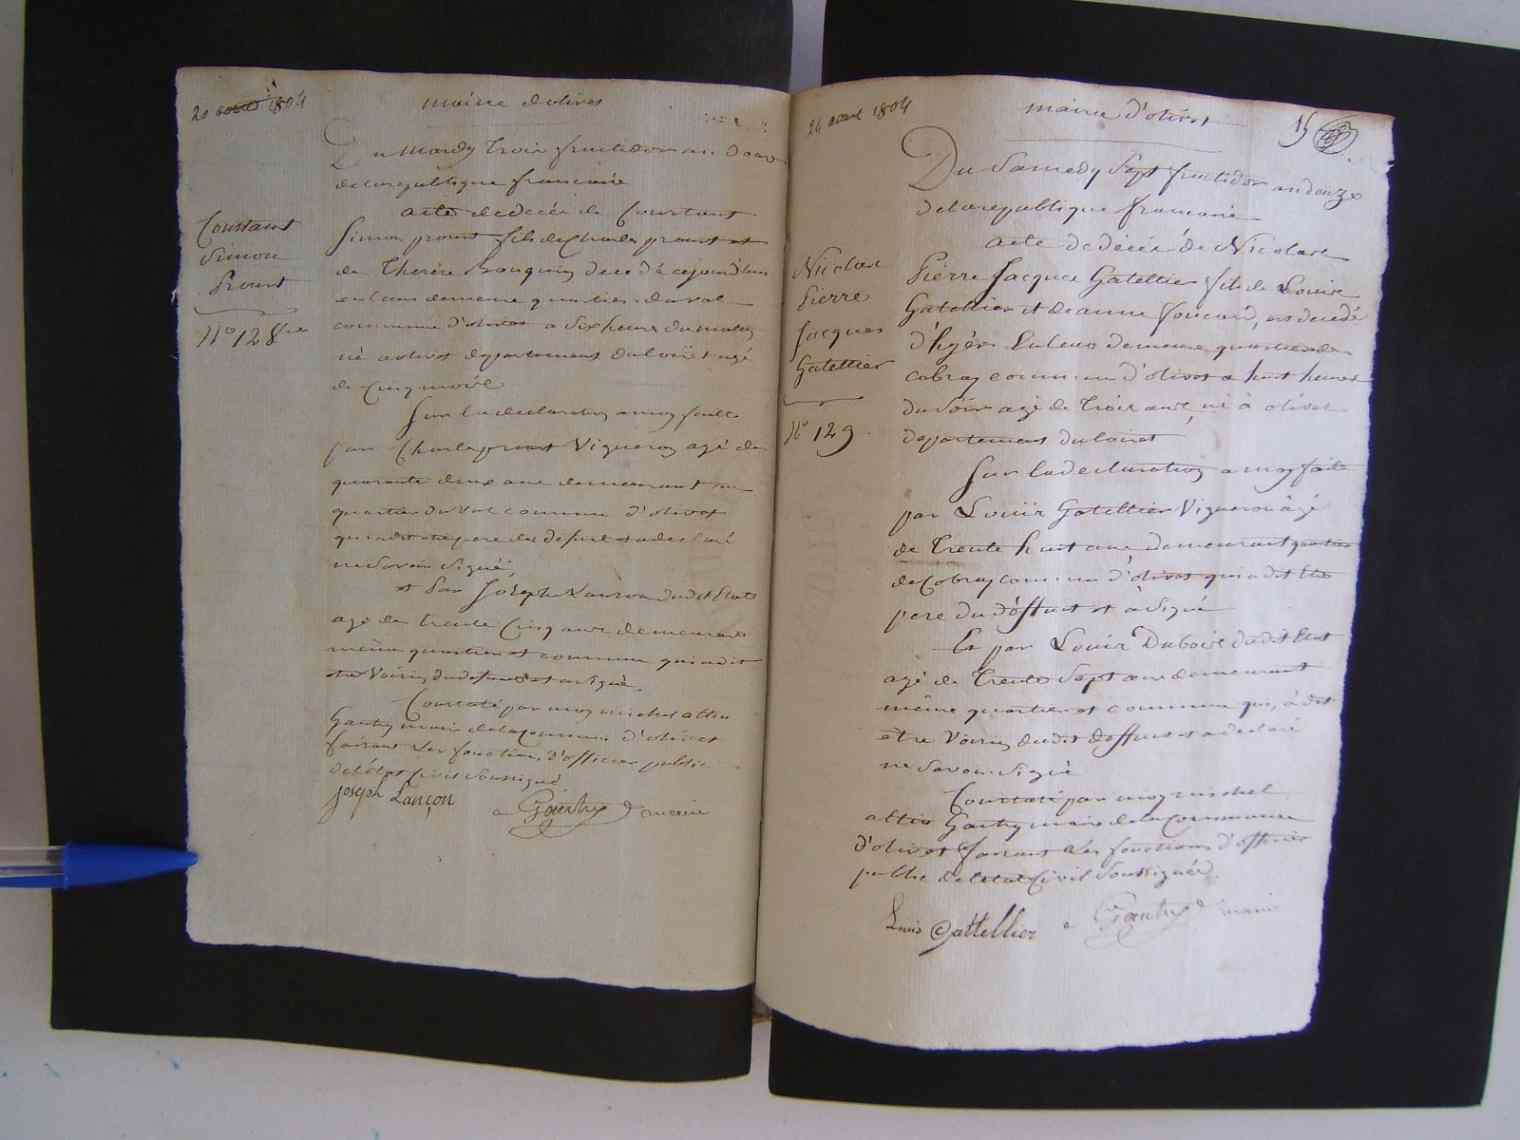 20 août 1804
mairie d'olivet
Du Mardy Trois fructidor an Douze
de la republique francaise
Constant
Simon
Prout
N° 128
acte de decés de Constant
Simon prout fils de Charles prout et
de Therese decedé cejourd'hui
en leur demeure quartier du val
commune d'olivet a dix heures du matin
né a olivet departement du Loiret agé
de Cinq mois
Sur la declaration a moy faitte
par Charle prout Vigneron agé de
quarante deux ans demeurant au
quartier du Val commune d'olivet
qui a dit etre pere du defunt et a declaré
ne Savoir Signé,
et par Joseph Lanson dudit Etat
agé de trente Cinq ans demeurant
même quartier et commune qui a dit
etre Voisin du defunt et a signé.
Constaté par moy michel altin
Gautry maire de la Commune d'olivet
faisant Les fonctions d'officier public
de l'état Civil Soussigné
Joseph Lançon
a Gautry maire
24 aout 1804
mairie d'olivet
15
Du Samedy Sept fructidor an douze
de la republique francaise
Nicolas
Pierre
Jacques
Gatellier
N° 129
acte de decés de Nicolas
Pierre Jacques Gatellier fils de Louis
Gatellier et de anne foucard, decedé
d'hyer en leur demeure quartier de
Cobray commune d'olivet a huit heures
du Soir agé de Trois ans, né à olivet
departement du Loiret
Sur la declaration a moy faite
par Louis Gatellier Vigneron âgé
de Trente huit ans demeurant quartier
de Cobray commune d'olivet qui a dit Etre
pere du déffunt et à Signé
Et par Louis Dubois dudit Etat
agé de Trente Sept ans demeurant
même quartier et commune qui, à dit
etre Voisin dudit Deffunt et a declaré
ne Savoir Signé
Constaté par moy michel
altin Gautry maire de la Commune
d'olivet faisant Les fonctions d'officier
public de l'etat Civil Soussigné.
Louis Gattellier
a Gautry maire